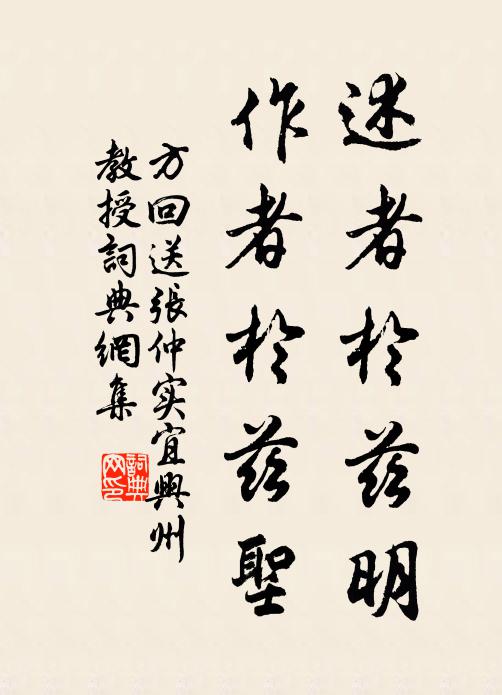 述者於茲明
作者於茲聖
方回送張仲实宜興州
教授詞典網集
詞典网印